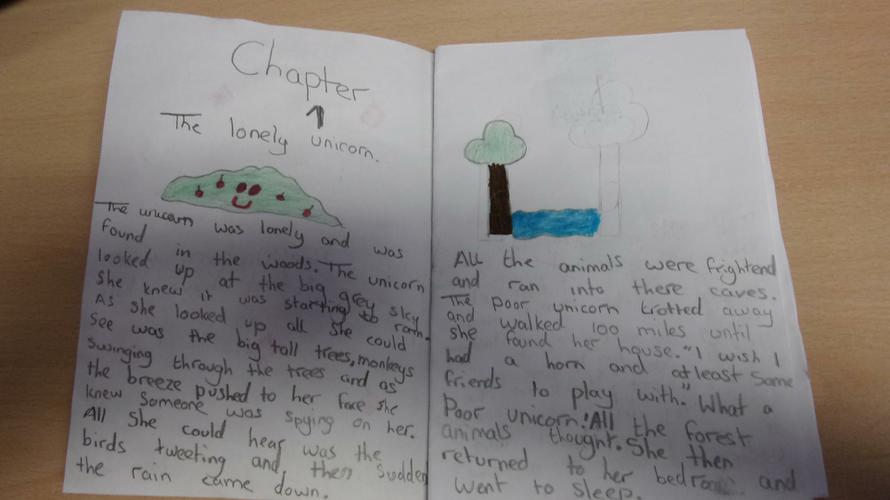 Chapter
1
The lonely unicorn.
The unicorn was lonely and was
found in the woods. The unicorn
looked up at the big grey sky
She knew it was starting to rain.
As she looked up all she could
see was the big tall trees, monkeys
swinging through the trees and as
the breeze pushed to her face she
knew someone was spying on her.
All she could hear was the
birds tweeting and then sudden
the rain came down.
All the animals were frightend
and ran into there caves.
The poor unicorn trotted away
and she walked 100 miles until
she found her house. "I wish I
had a horn and atleast some
friends to play with." What a
Poor unicorn! All the forest
animals thought. She then
returned to her bedroom and
went to sleep.